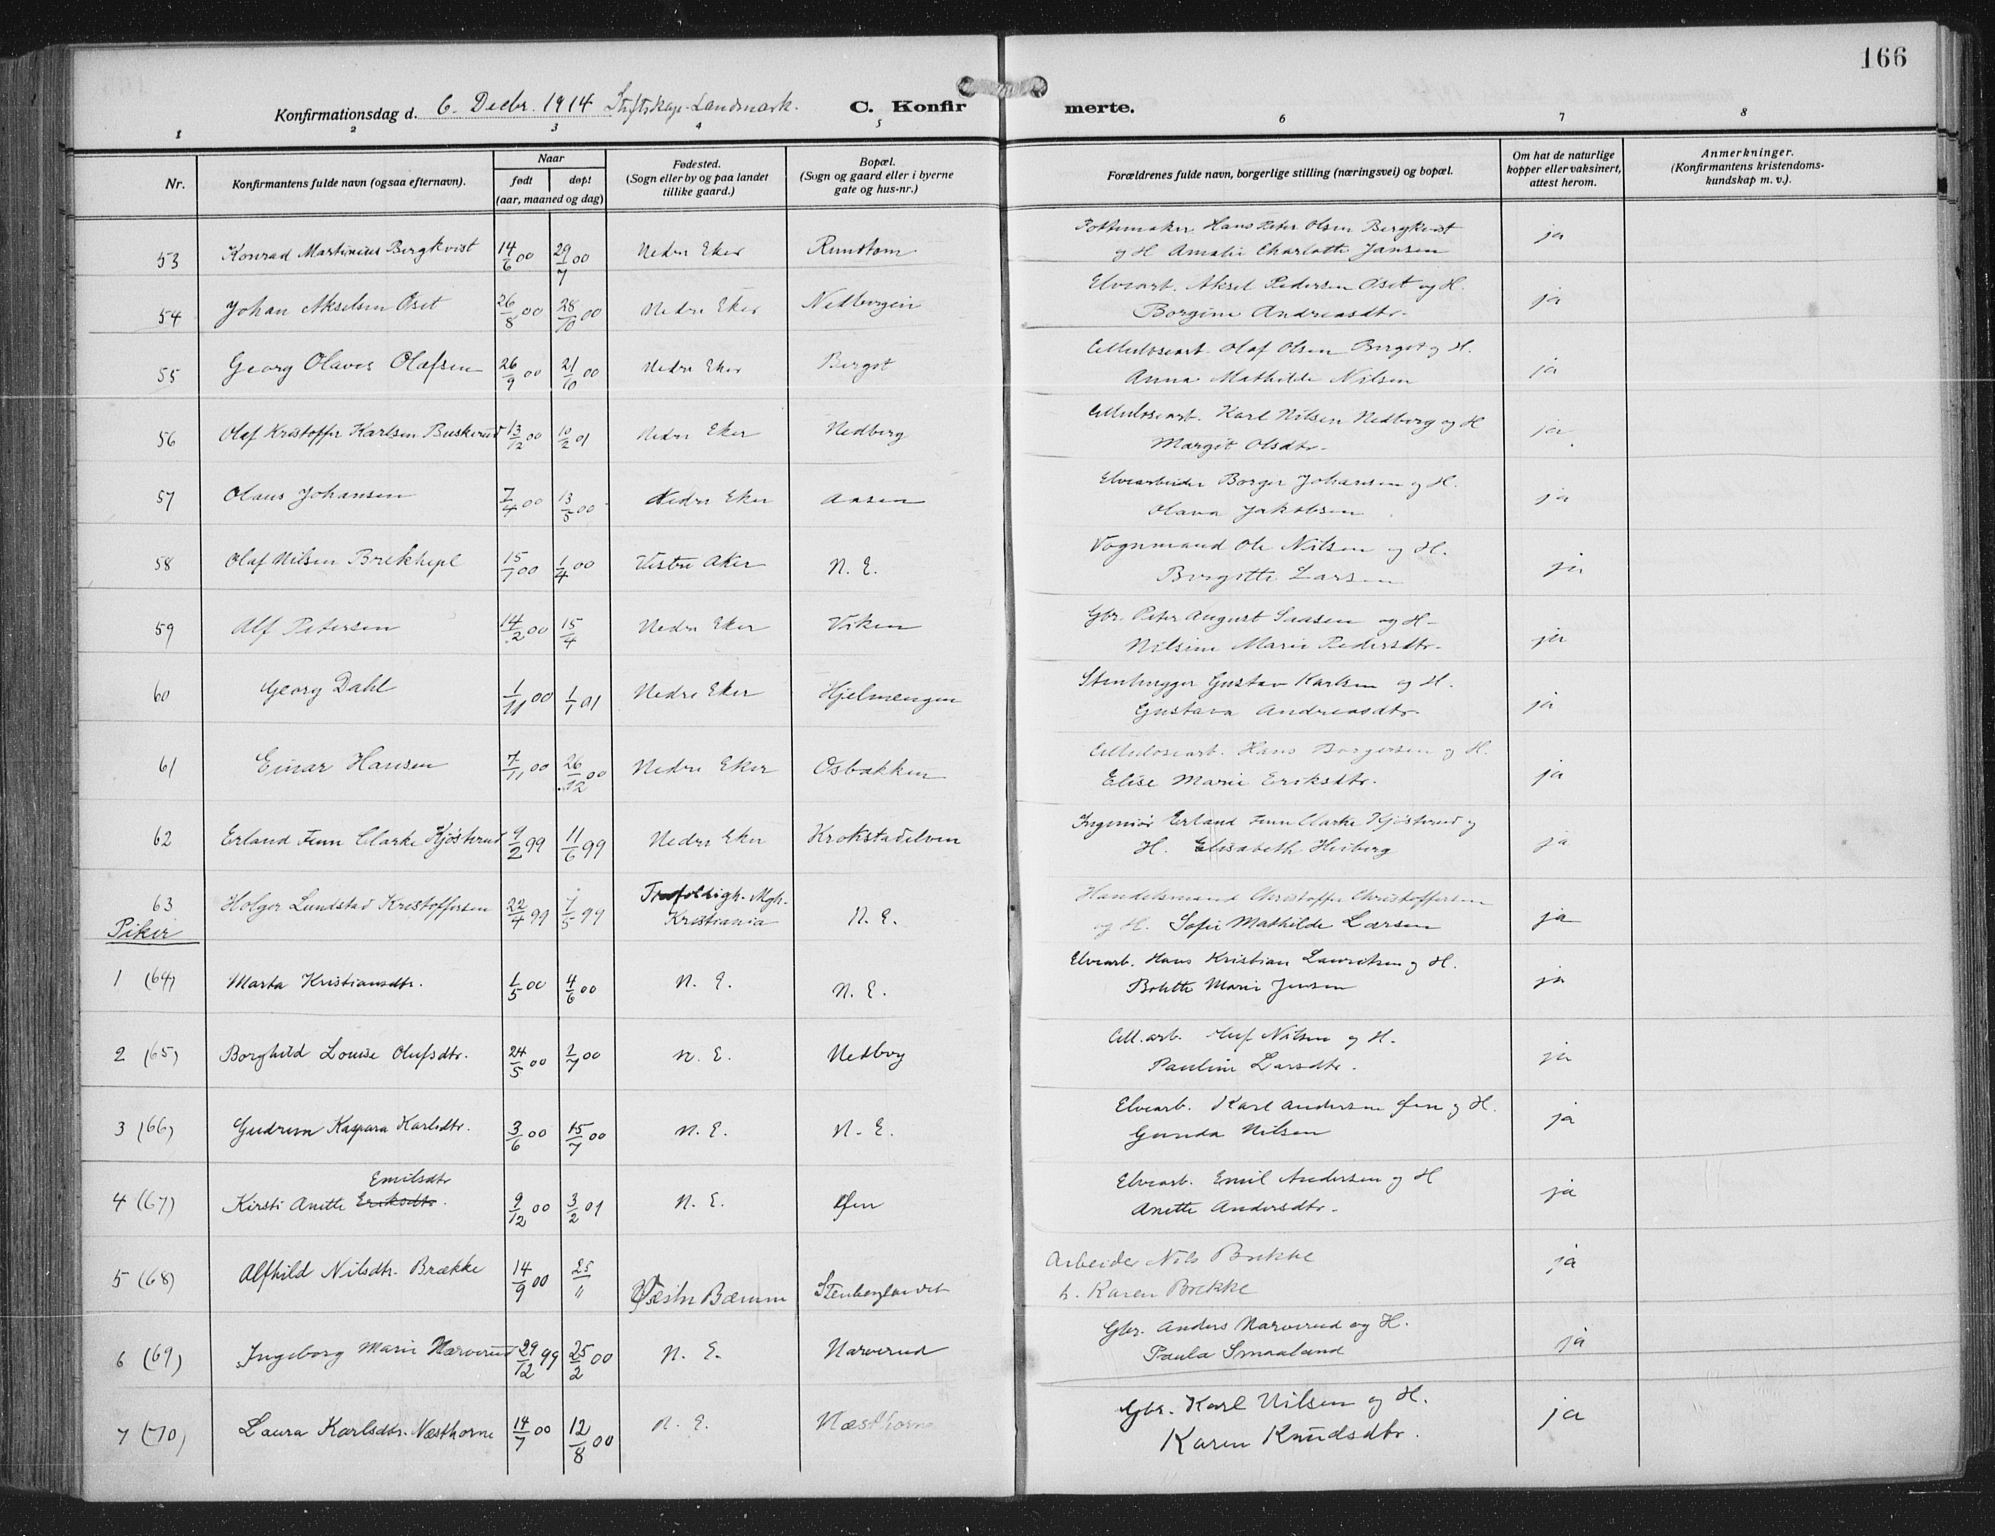 166
Konfirmationsdag d. 6. Decbr. 1914 Stiftskap. Landmark. C. Konfirmerte.
1 2 3 4 5 6 7 8
Nr. Konfirmantens fulde navn (ogsaa efternavn). Naar født døpt (aar, maaned og dag) Fødested. (Sogn eller by og paa landet tillike gaard.) Bopæl. (Sogn og gaard eller i byerne gate og hus-nr.) Forældrenes fulde navn, borgerlige stilling (næringsvei) og bopæl. Om hat de naturlige kopper eller vaksinert, attest herom. Anmerkninger. (Konfirmantens kristendomskundskap m. v.).
53 Konrad Martinius Bergkvist 14/6 00 29/7 00 Nedre Eker Rundtom Hans Peter Olsen Bergkvist og H. Amalie Charlotte Jansen ja
54 Johan Akselsen Øset 26/8 00 28/10 00 Nedre Eker Nedbergein Elvearb. Aksel Pedersen Øset og H. Borgine Andreasdtr. ja
55 Georg Olaves Olafsen 26/9 00 21/10 00 Nedre Eker Berget Cellulosearb. Olaf Olsen Berget og H. Anna Mathilde Nilsen ja
56 Olaf Kristoffer Karlsen Buskerud 13/12 00 10/2 01 Nedre Eker Nedberg Cellulosearb. Karl Nilsen Nedberg og H Margit Olsdtr. ja
57 Olaus Johansen 7/4 00 13/5 00 Nedre Eker Aasen Elvearbeider Borger Johansen og H. Olava Jakobsen ja
58 Olaf Nilsen Brekhepl 15/1 00 1/4 00 Vestre Aker N. E. Vognmand Ole Nilsen og H. Birgitte Larsen ja
59 Alf Petersen 14/2 00 15/4 Nedre Eker Viken Gbr. Peter August Saasen og H. Nilsine Marie Pedersdtr. ja
60 Georg Dahl 1/11 00 1/1 01 Nedre Eker Hjelmengen Stenhugger Gustav Karlsen og H. Gustava Andreasdtr. ja
61 Einar Hansen 7/11 00 26/12 00 Nedre Eker Osbakken Cellulosearb. Hans Borgersen og H. Elise Marie Eriksdtr. ja
62 Erland Fenn Clarke Kjøsterud 9/2 99 11/6 99 Nedre Eker Krokstadelven Ingeniør Erland Fenn Clarke Kjøsterud og H. Elisabeth Heiberg ja
63 Holger Lundstad Kristoffersen 22/4 99 7/5 99 Trefoldigh. Mgh. Kristiania N. E. Handelsmand Christoffer Christoffersen og H. Sofie Mathilde Larsen ja
Piker
1 (64) Marta Kristiansdtr. 1/5 00 4/6 00 N. E. N. E. Elvearb. Hans Kristian Lauritsen og H. Bolette Marie Jensen ja
2 (65) Borghild Louise Olufsdtr. 24/5 00 2/7 00 N. E. Nedberg Cell.arb. Oluf Nilsen og H. Pauline Larsdtr. ja
3 (66) Gudrun Kaspara Karlsdtr. 3/6 00 15/7 00 N. E. N. E. Elvearb. Karl Andersen Øen og H. Gunda Nilsen ja
4 (67) Kirsti Anette Eriksdtr. Emilsdtr 9/12 00 3/2 01 N. E. Øen Elvearb. Emil Andersen og H Anette Andersdtr. ja
5 (68) Alfhild Nilsdtr. Brække 14/9 00 25/" Vestre Bærum Stenberglandet Arbeider Nils Brekke h. Karen Brekke ja
6 (69) Ingeborg Marie Narverud 29/12 99 25/2 00 N. E. Narverud Gbr. Anders Narverud og H. Paula Smaaland ja
7 (70) Laura Karlsdtr. Næsthorne 14/7 00 12/8 00 N. E. Næsthorne Gbr. Karl Nilsen og H. Karen Knudsdtr. ja